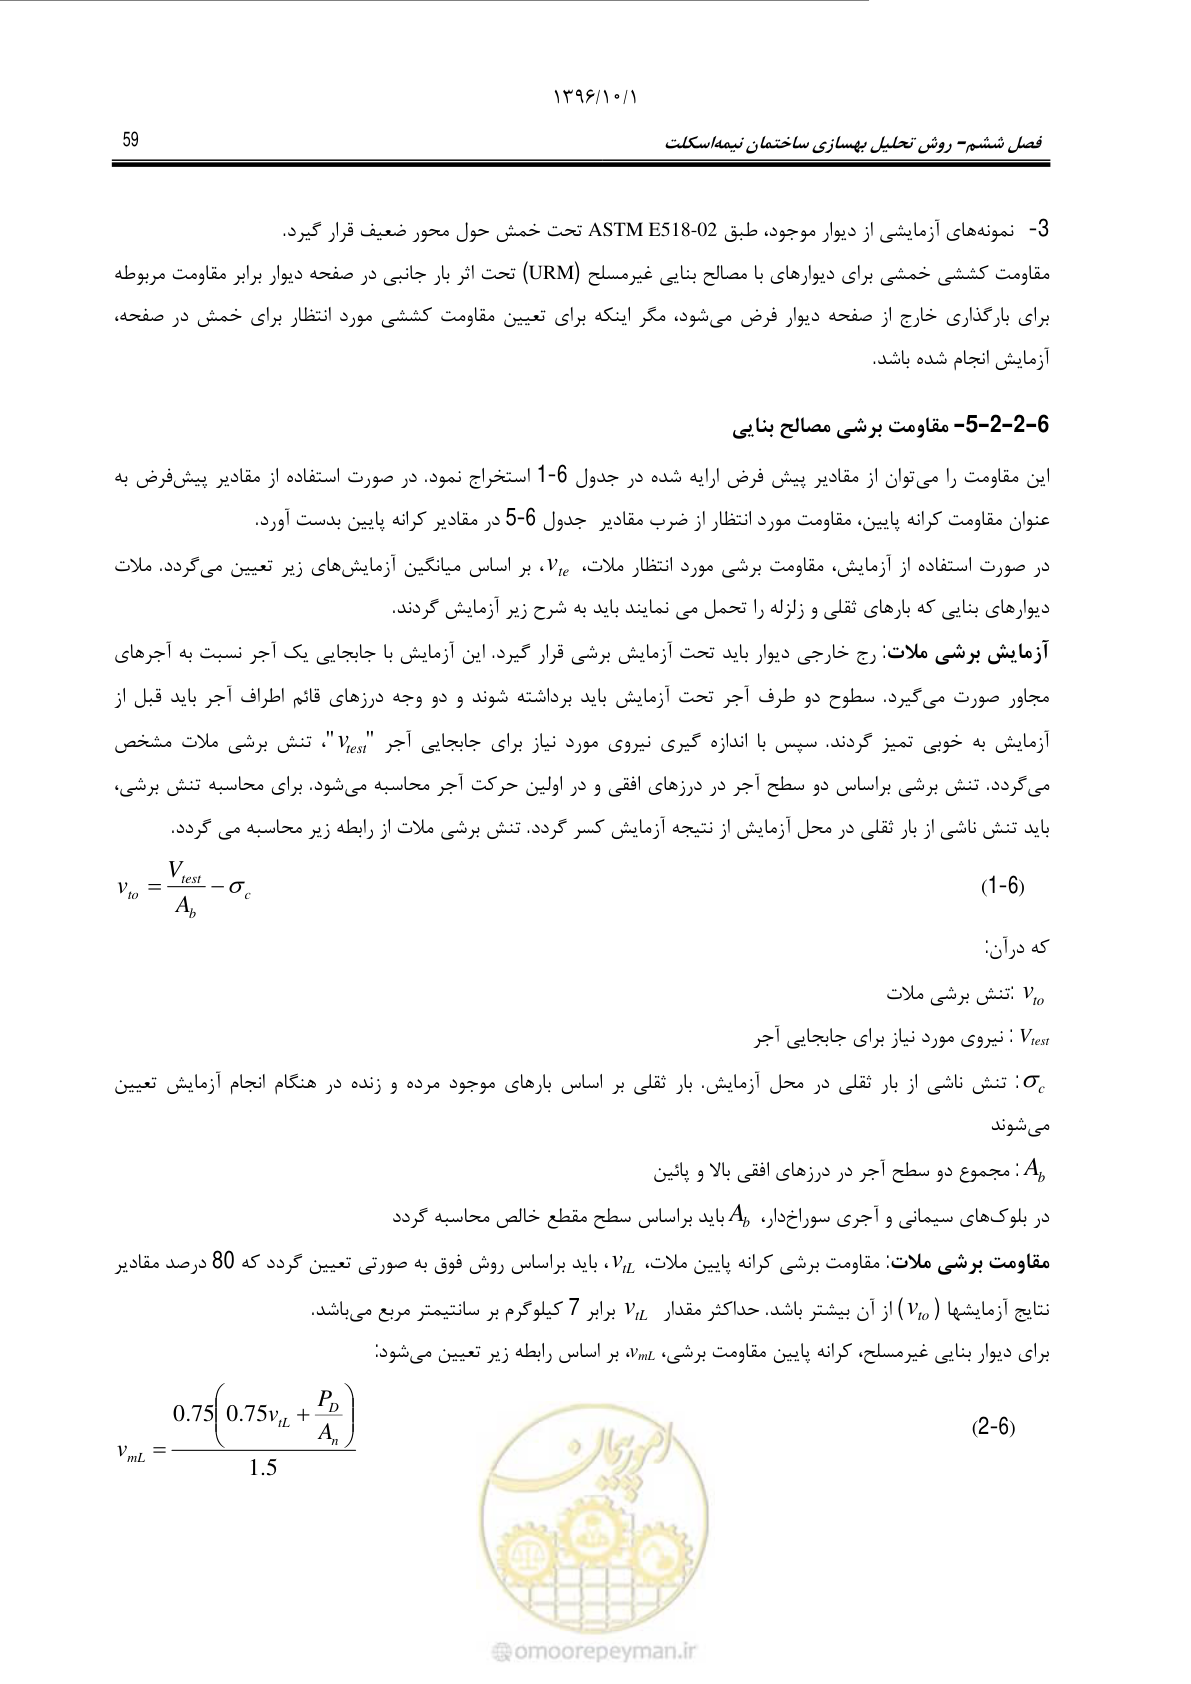 ۱۳۹۶/۱۰/۱
فصل ششم- روش تحلیل بهسازی ساختمان نیمه‌اسکلت 59
3- نمونه‌های آزمایشی از دیوار موجود، طبق ASTM E518-02 تحت خمش حول محور ضعیف قرار گیرد.
مقاومت کششی خمشی برای دیوارهای با مصالح بنایی غیرمسلح (URM) تحت اثر بار جانبی در صفحه دیوار برابر مقاومت مربوطه
برای بارگذاری خارج از صفحه دیوار فرض می‌شود، مگر اینکه برای تعیین مقاومت کششی مورد انتظار برای خمش در صفحه،
آزمایش انجام شده باشد.
6-2-2-5- مقاومت برشی مصالح بنایی
این مقاومت را می‌توان از مقادیر پیش فرض ارایه شده در جدول 6-1 استخراج نمود. در صورت استفاده از مقادیر پیش‌فرض به
عنوان مقاومت کرانه پایین، مقاومت مورد انتظار از ضرب مقادیر جدول 6-5 در مقادیر کرانه پایین بدست آورد.
در صورت استفاده از آزمایش، مقاومت برشی مورد انتظار ملات، v_te، بر اساس میانگین آزمایش‌های زیر تعیین می‌گردد. ملات
دیوارهای بنایی که بارهای ثقلی و زلزله را تحمل می نمایند باید به شرح زیر آزمایش گردند.
آزمایش برشی ملات: رج خارجی دیوار باید تحت آزمایش برشی قرار گیرد. این آزمایش با جابجایی یک آجر نسبت به آجرهای
مجاور صورت می‌گیرد. سطوح دو طرف آجر تحت آزمایش باید برداشته شوند و دو وجه درزهای قائم اطراف آجر باید قبل از
آزمایش به خوبی تمیز گردند. سپس با اندازه گیری نیروی مورد نیاز برای جابجایی آجر "v_test"، تنش برشی ملات مشخص
می‌گردد. تنش برشی براساس دو سطح آجر در درزهای افقی و در اولین حرکت آجر محاسبه می‌شود. برای محاسبه تنش برشی،
باید تنش ناشی از بار ثقلی در محل آزمایش از نتیجه آزمایش کسر گردد. تنش برشی ملات از رابطه زیر محاسبه می گردد.
(1-6) v_to = V_test / A_b − σ_c
که درآن:
v_to :تنش برشی ملات
V_test : نیروی مورد نیاز برای جابجایی آجر
σ_c : تنش ناشی از بار ثقلی در محل آزمایش. بار ثقلی بر اساس بارهای موجود مرده و زنده در هنگام انجام آزمایش تعیین
می‌شوند
A_b : مجموع دو سطح آجر در درزهای افقی بالا و پائین
در بلوک‌های سیمانی و آجری سوراخ‌دار، A_b باید براساس سطح مقطع خالص محاسبه گردد
مقاومت برشی ملات: مقاومت برشی کرانه پایین ملات، v_tL، باید براساس روش فوق به صورتی تعیین گردد که 80 درصد مقادیر
نتایج آزمایشها (v_to) از آن بیشتر باشد. حداکثر مقدار v_tL برابر 7 کیلوگرم بر سانتیمتر مربع می‌باشد.
برای دیوار بنایی غیرمسلح، کرانه پایین مقاومت برشی، v_mL، بر اساس رابطه زیر تعیین می‌شود:
(2-6) v_mL = 0.75(0.75v_tL + P_D / A_n) / 1.5
امور پیمان
@omoorepeyman.ir